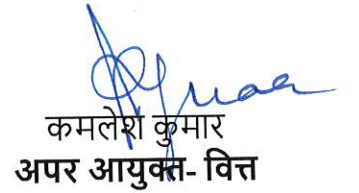 कमलेश कुमार
अपर आयुक्त- वित्त